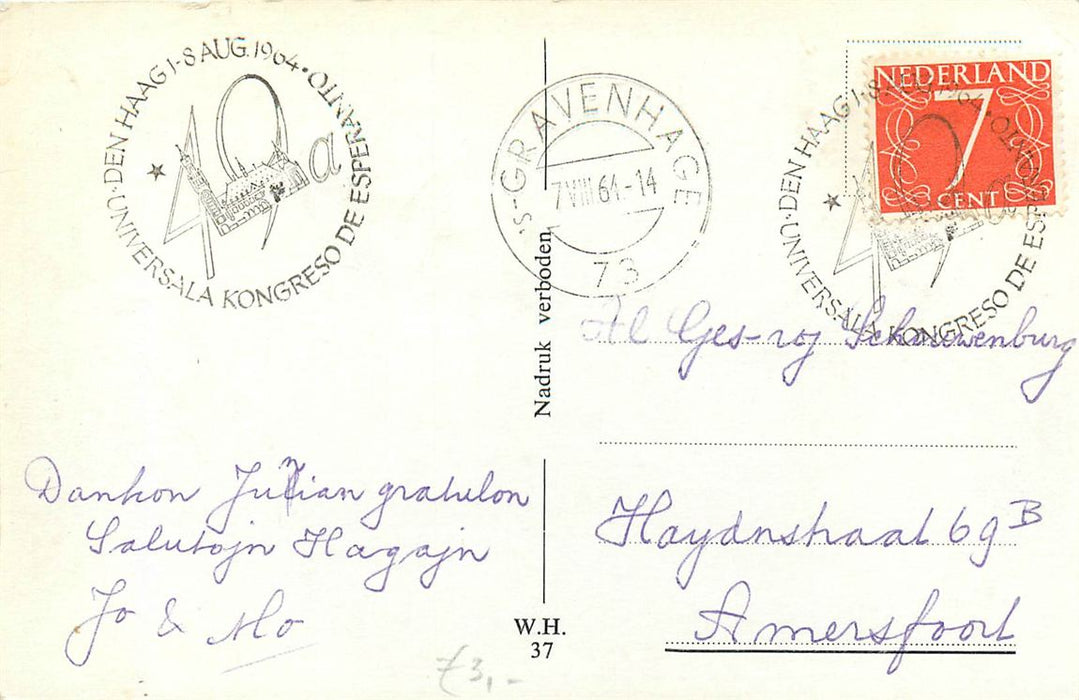 DEN HAAG 1-8 AUG. 1964 · UNIVERSALA KONGRESO DE ESPERANTO
49a
's-GRAVENHAGE
7 VIII 64-14
73
NEDERLAND
7
CENT
DEN HAAG 1-8 1964 · UNIVERSALA KONGRESO DE ESP
Nadruk verboden
Al Ges-roj Schouwenburg
Haydnstraat 69 B
Amersfoort
Dankon gratulon
Salutojn Hagajn
Jo & Mo
W.H.
37
3,-